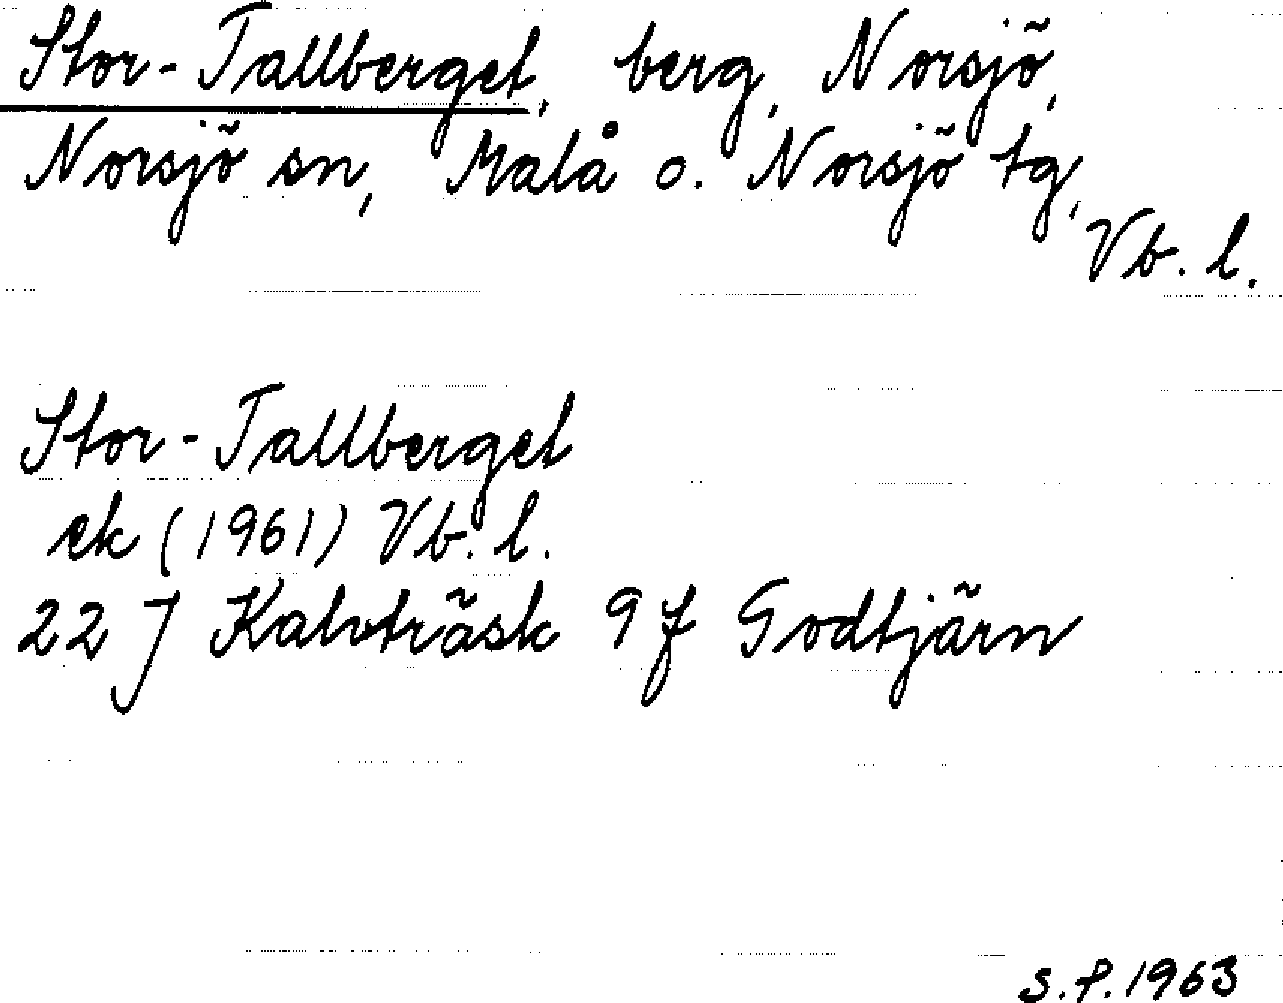 Stor-Tallberget, berg, Norsjö,
Norsjö sn, Malå o. Norsjö tg,
Vb. l.
Stor-Tallberget
ek (1961) Vb. l.
22 J Kalvträsk 9f Godtjärn
S.P. 1963